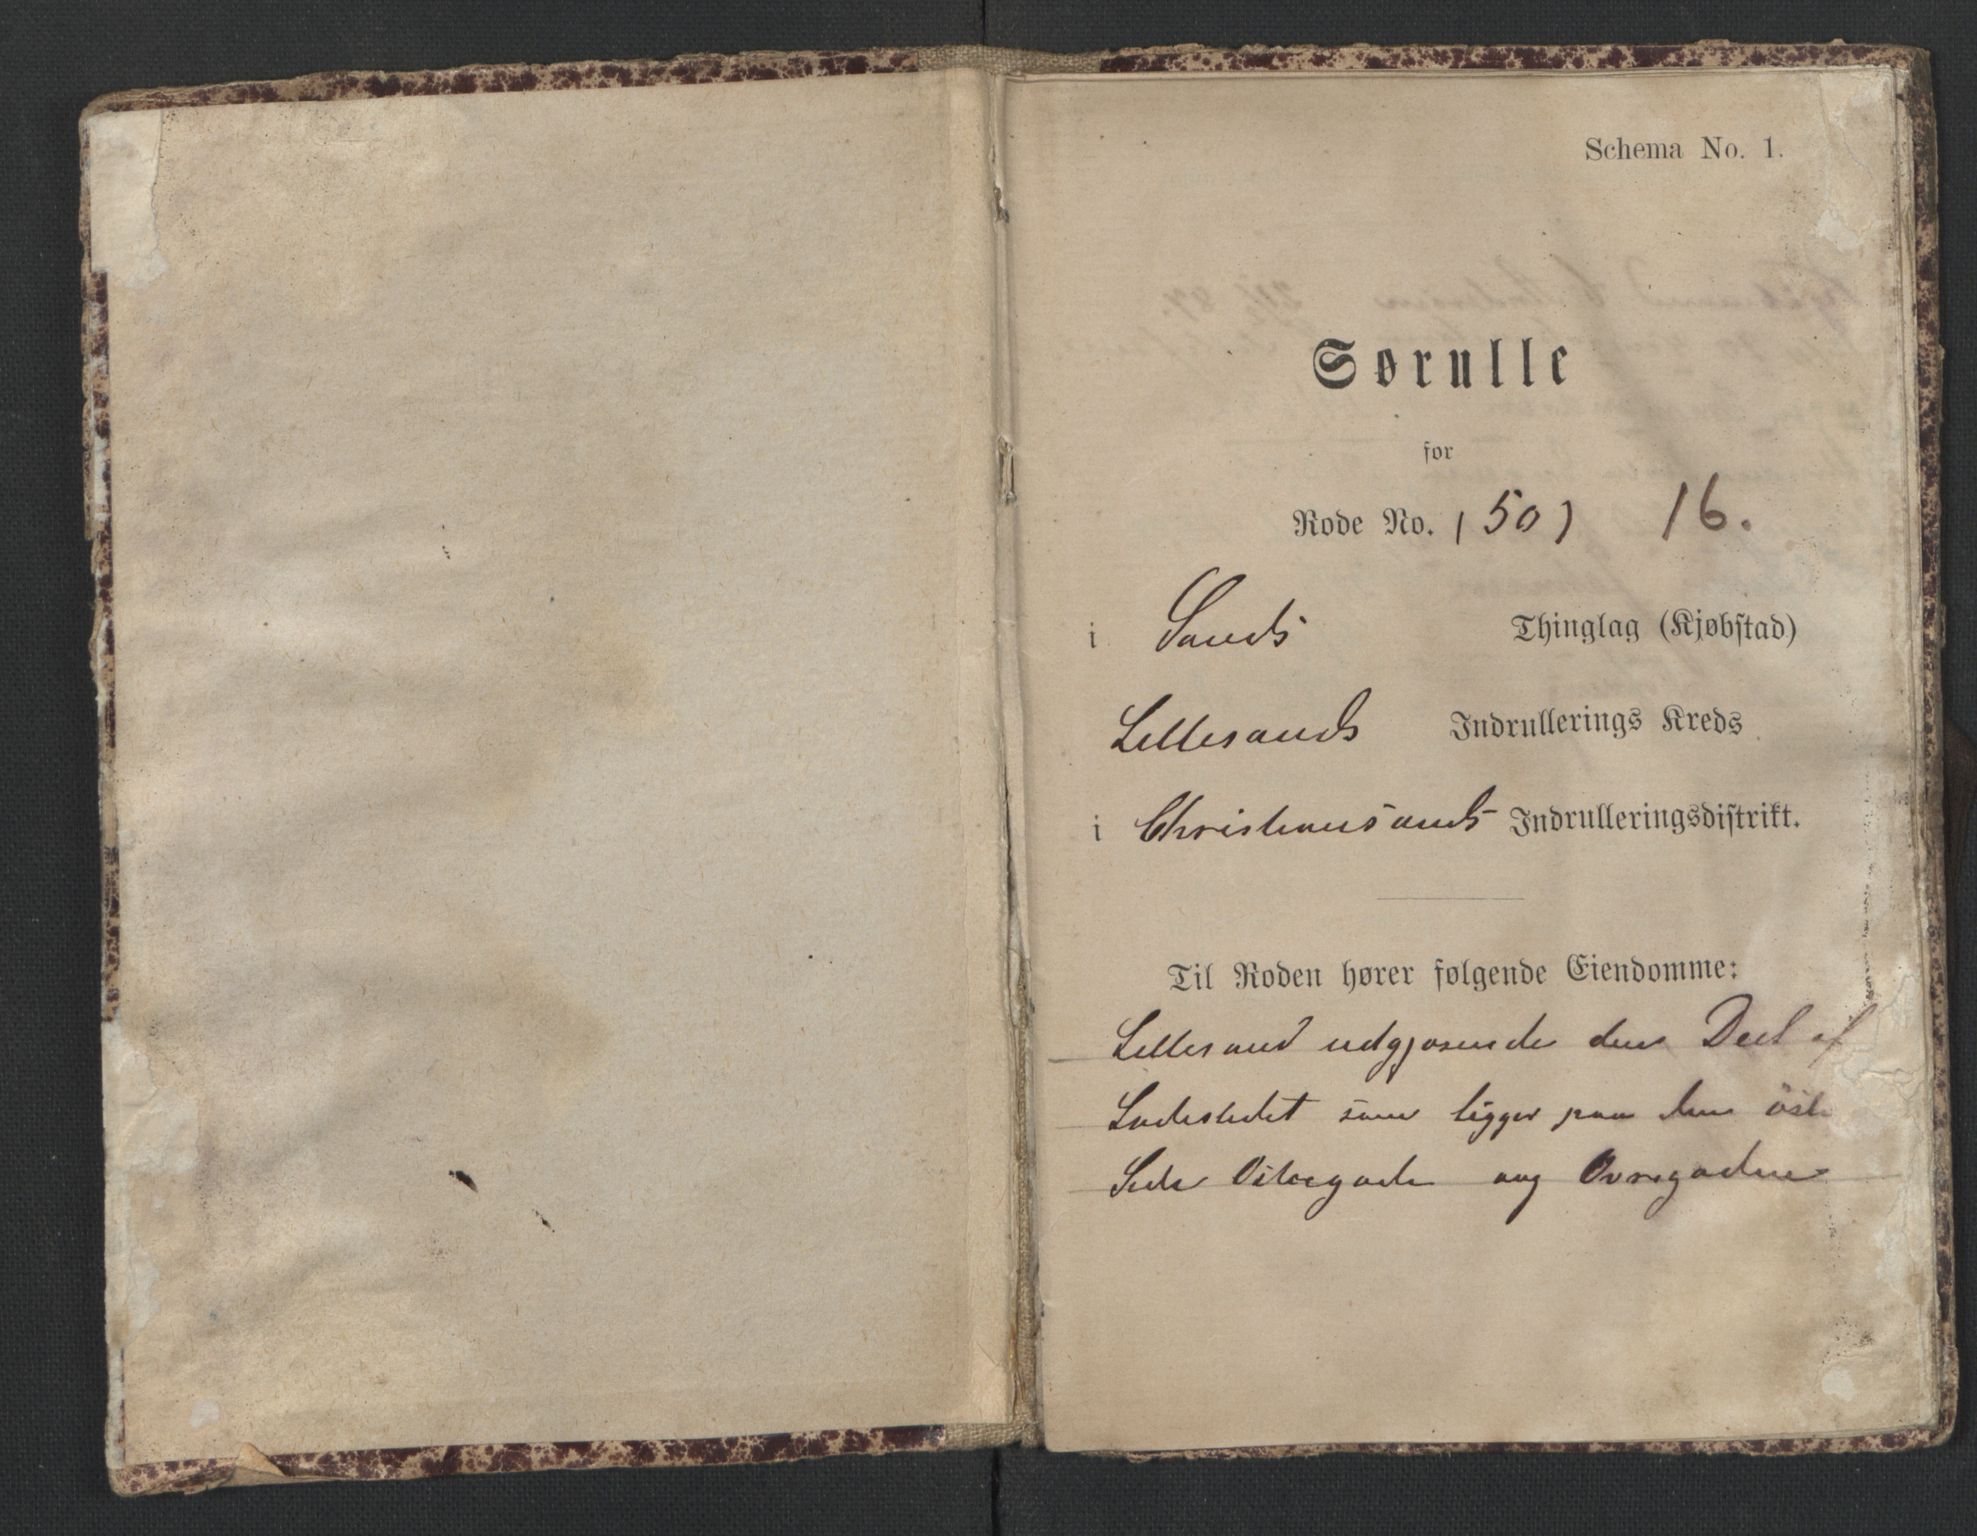 Schema No. 1.
Sørulle
for
Rode No. (50) 16.
i Sands Thinglag (Kjøbstad)
Lillesands Indrullerings Kreds
i Christiansands Indrulleringsdistrikt.
Til Roden hører følgende Eiendomme:
Lillesand udgjørende den Deel af
Ladestedet som ligger paa den öste
Side Ostregade og Ovregadene